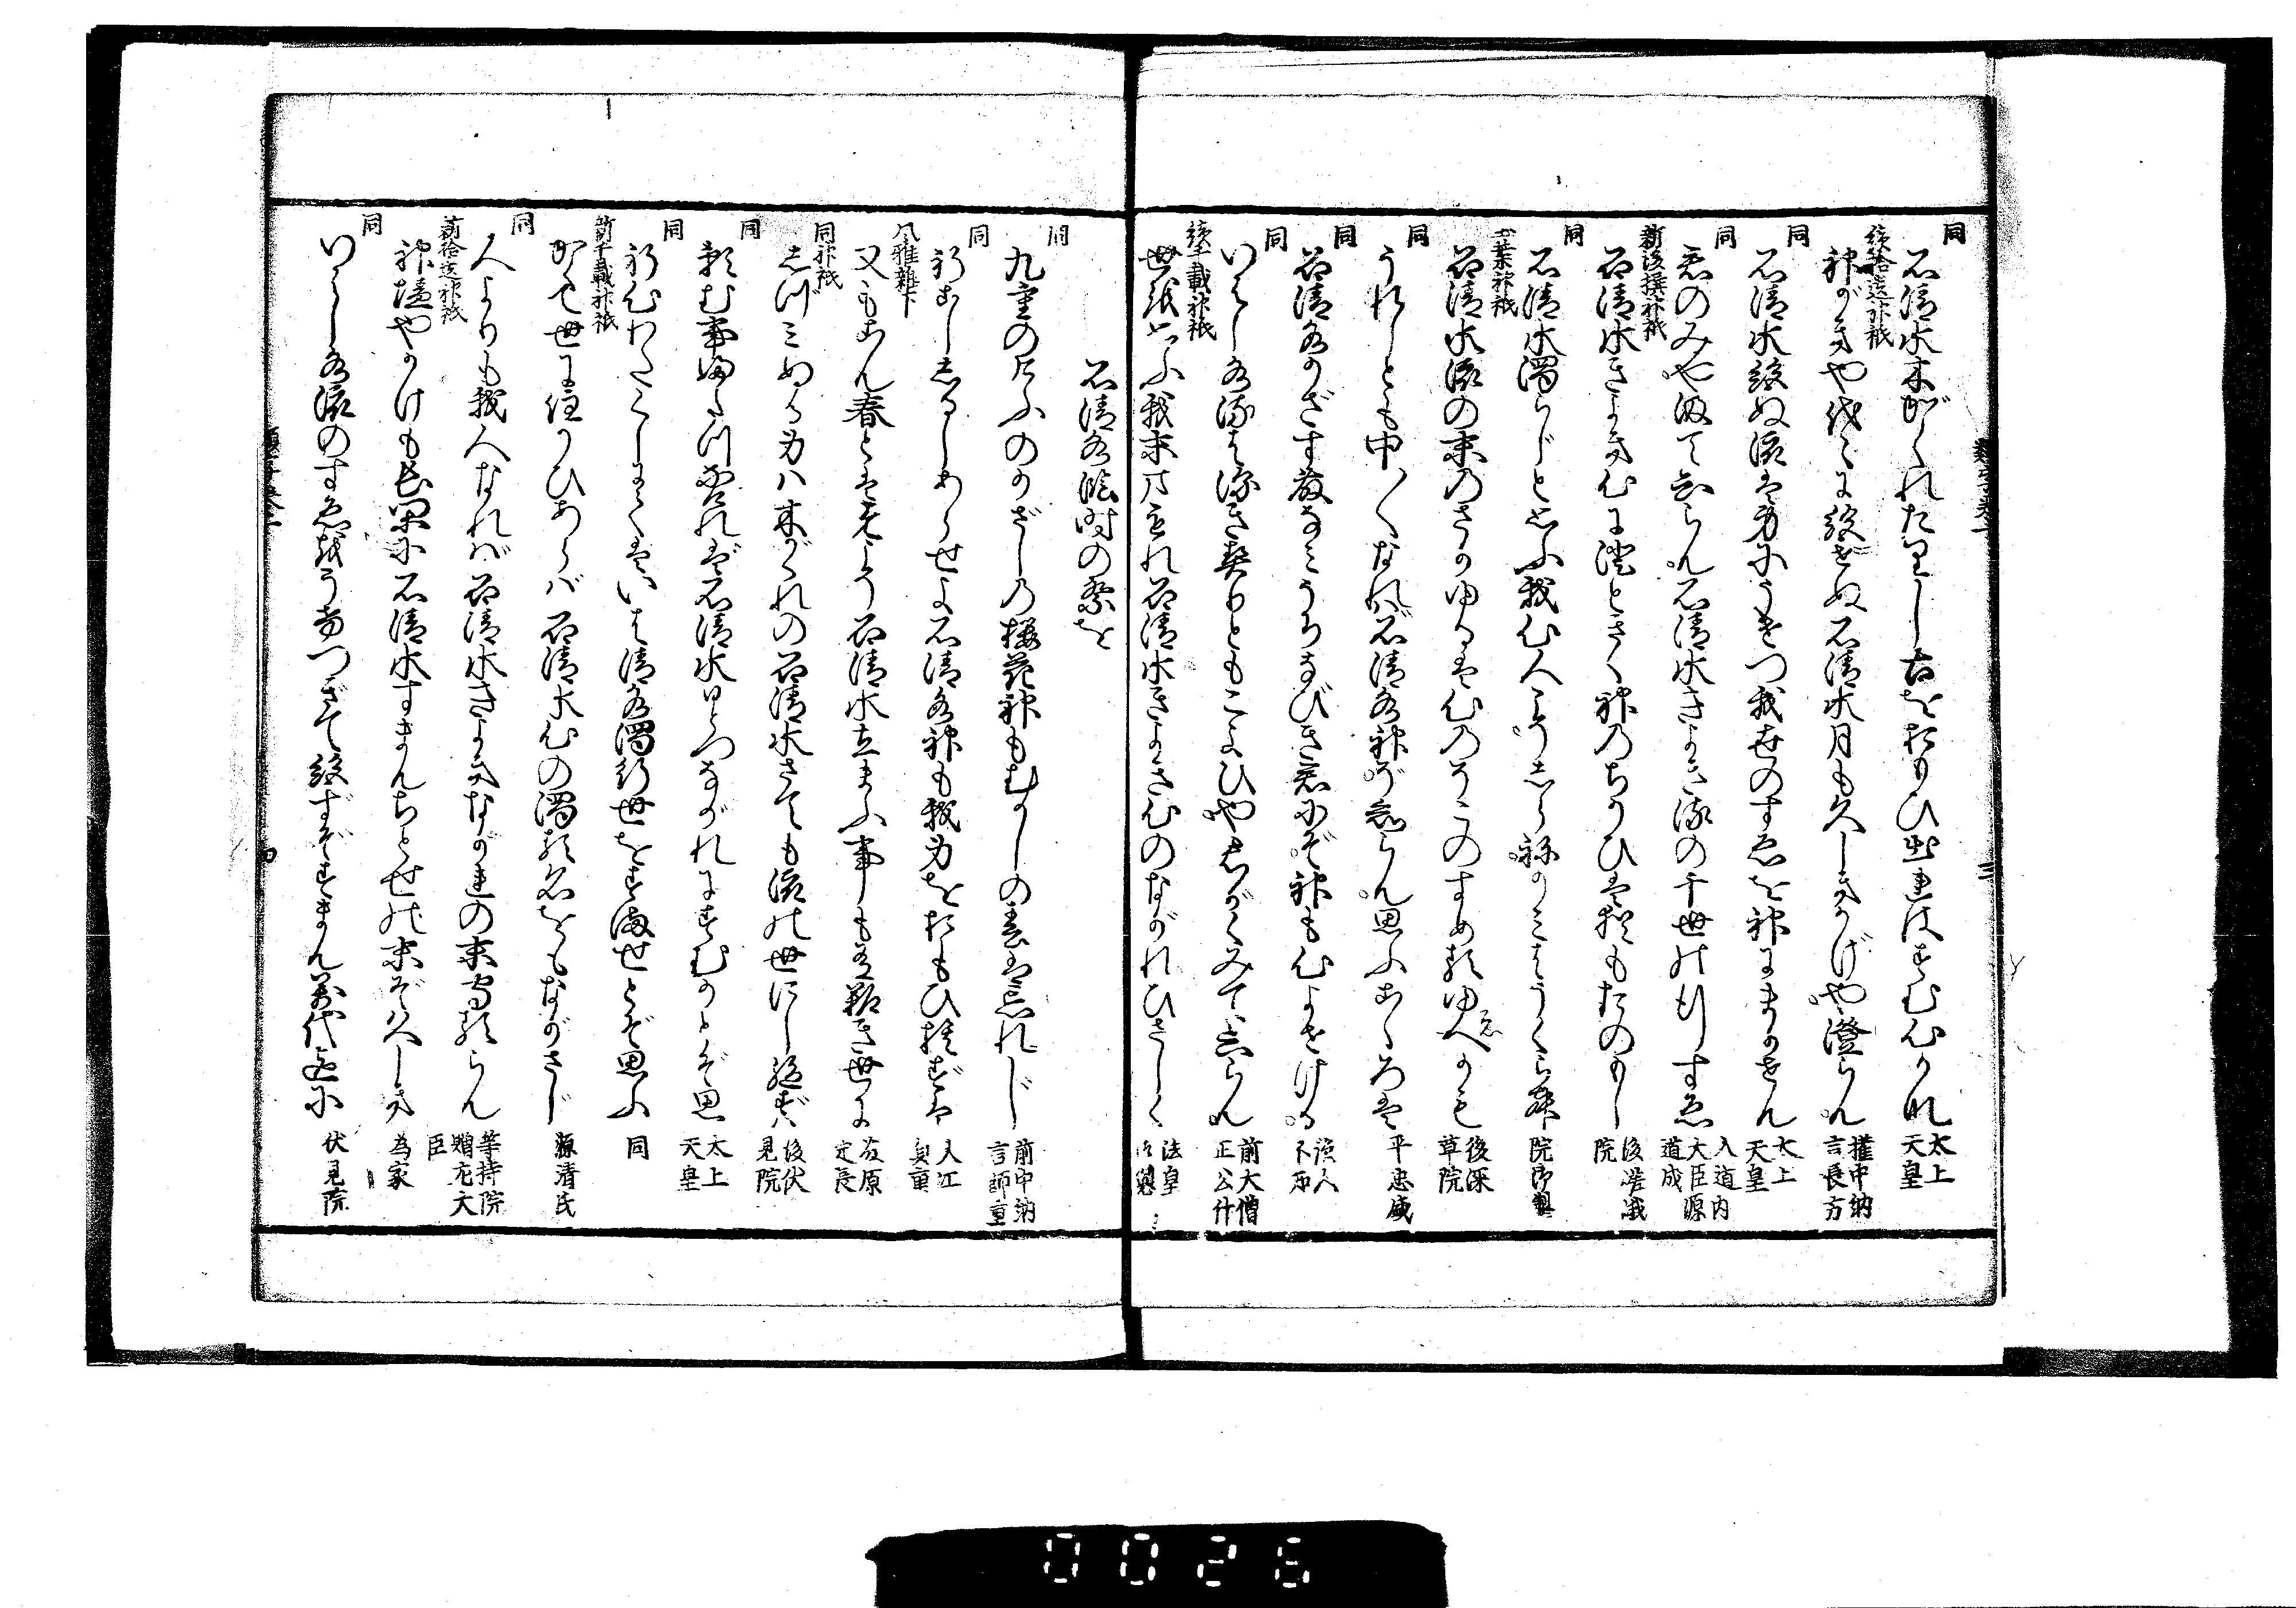 同
石清水木がくれたりし古をおもひ出ればすむ心かな 太上天皇
続拾遺神祇
神がきや代々に絶せぬ石清水月も久しきかげや澄らん 権中納言長方
同
石清水絶ぬ流は身にうけつ我世のすゑを神にまかせん 太上天皇
同
君のみやくみて知らん石清水きよき流の千世の行すゑ 入道内大臣源道成
新後撰神祇
石清水きよき心に澄ときく神のちかひは猶もたのもし 後嵯峨院
同
石清水濁らじと思ふ我心人こそしらね神はうくらむ 院御製
玉葉神祇
石清水流の末のさかゆるは心のそこのすめるゆへかも 後深草院
同
うれしとも中〳〵なれば石清水神ぞ知らん思ふこゝろは 平忠盛
同
石清水かざす藤なみうちなびき君にぞ神も心よせける 讀人不知
同
いはし水流は深き契りともこよひや君がくみて知らん 前大僧正公什
続千載神祇
世を思ふ我末まもれ石清水きよき心のながれひさしく 法皇御製
石清水臨時の祭を
同
九重のけふのかざしの桜花神もむかしの春は忘れじ 前中納言師重
同
祈こししるしあらせよ石清水神も我身をおもひ捨ずは 大江
風雅雑下
又もこん春とはまたう石清水立まふ事も 難き世に 藤原定長
同神祇
しづみぬる身は木がくれの石清水さても流の世にし絶ずは 後伏見院
同
頼む事ふたつなければ石清水ひとつながれにすむかとぞ思 太上天皇
同
祈心わたくしにてはいはし清水濁行世をすませとぞ思ふ 同
新千載神祇
かくて世に住かひあらば石清水心の濁る名をもながさじ 源清氏
同
人よりも我人なれば石清水きよきながれの末守るらん 等持院贈左大臣
新拾遺神祇
神垣やかけも長閑に石清水すまんちとせの末ぞ久しき 為家
同
いはし水流のすゑをうけつぎて絶ずぞすまん万代迄に 伏見院
0026